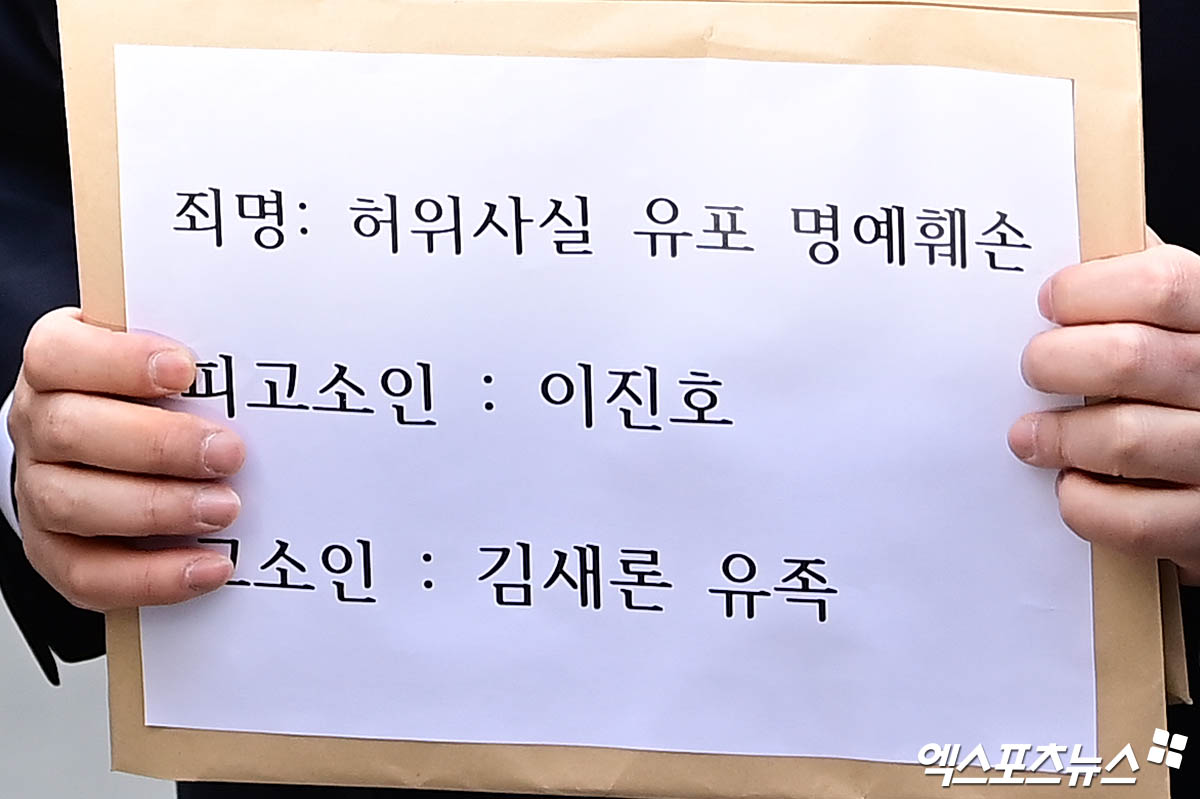 죄명: 허위사실 유포 명예훼손
피고소인 : 이진호
고소인 : 김새론 유족
엑스포츠뉴스